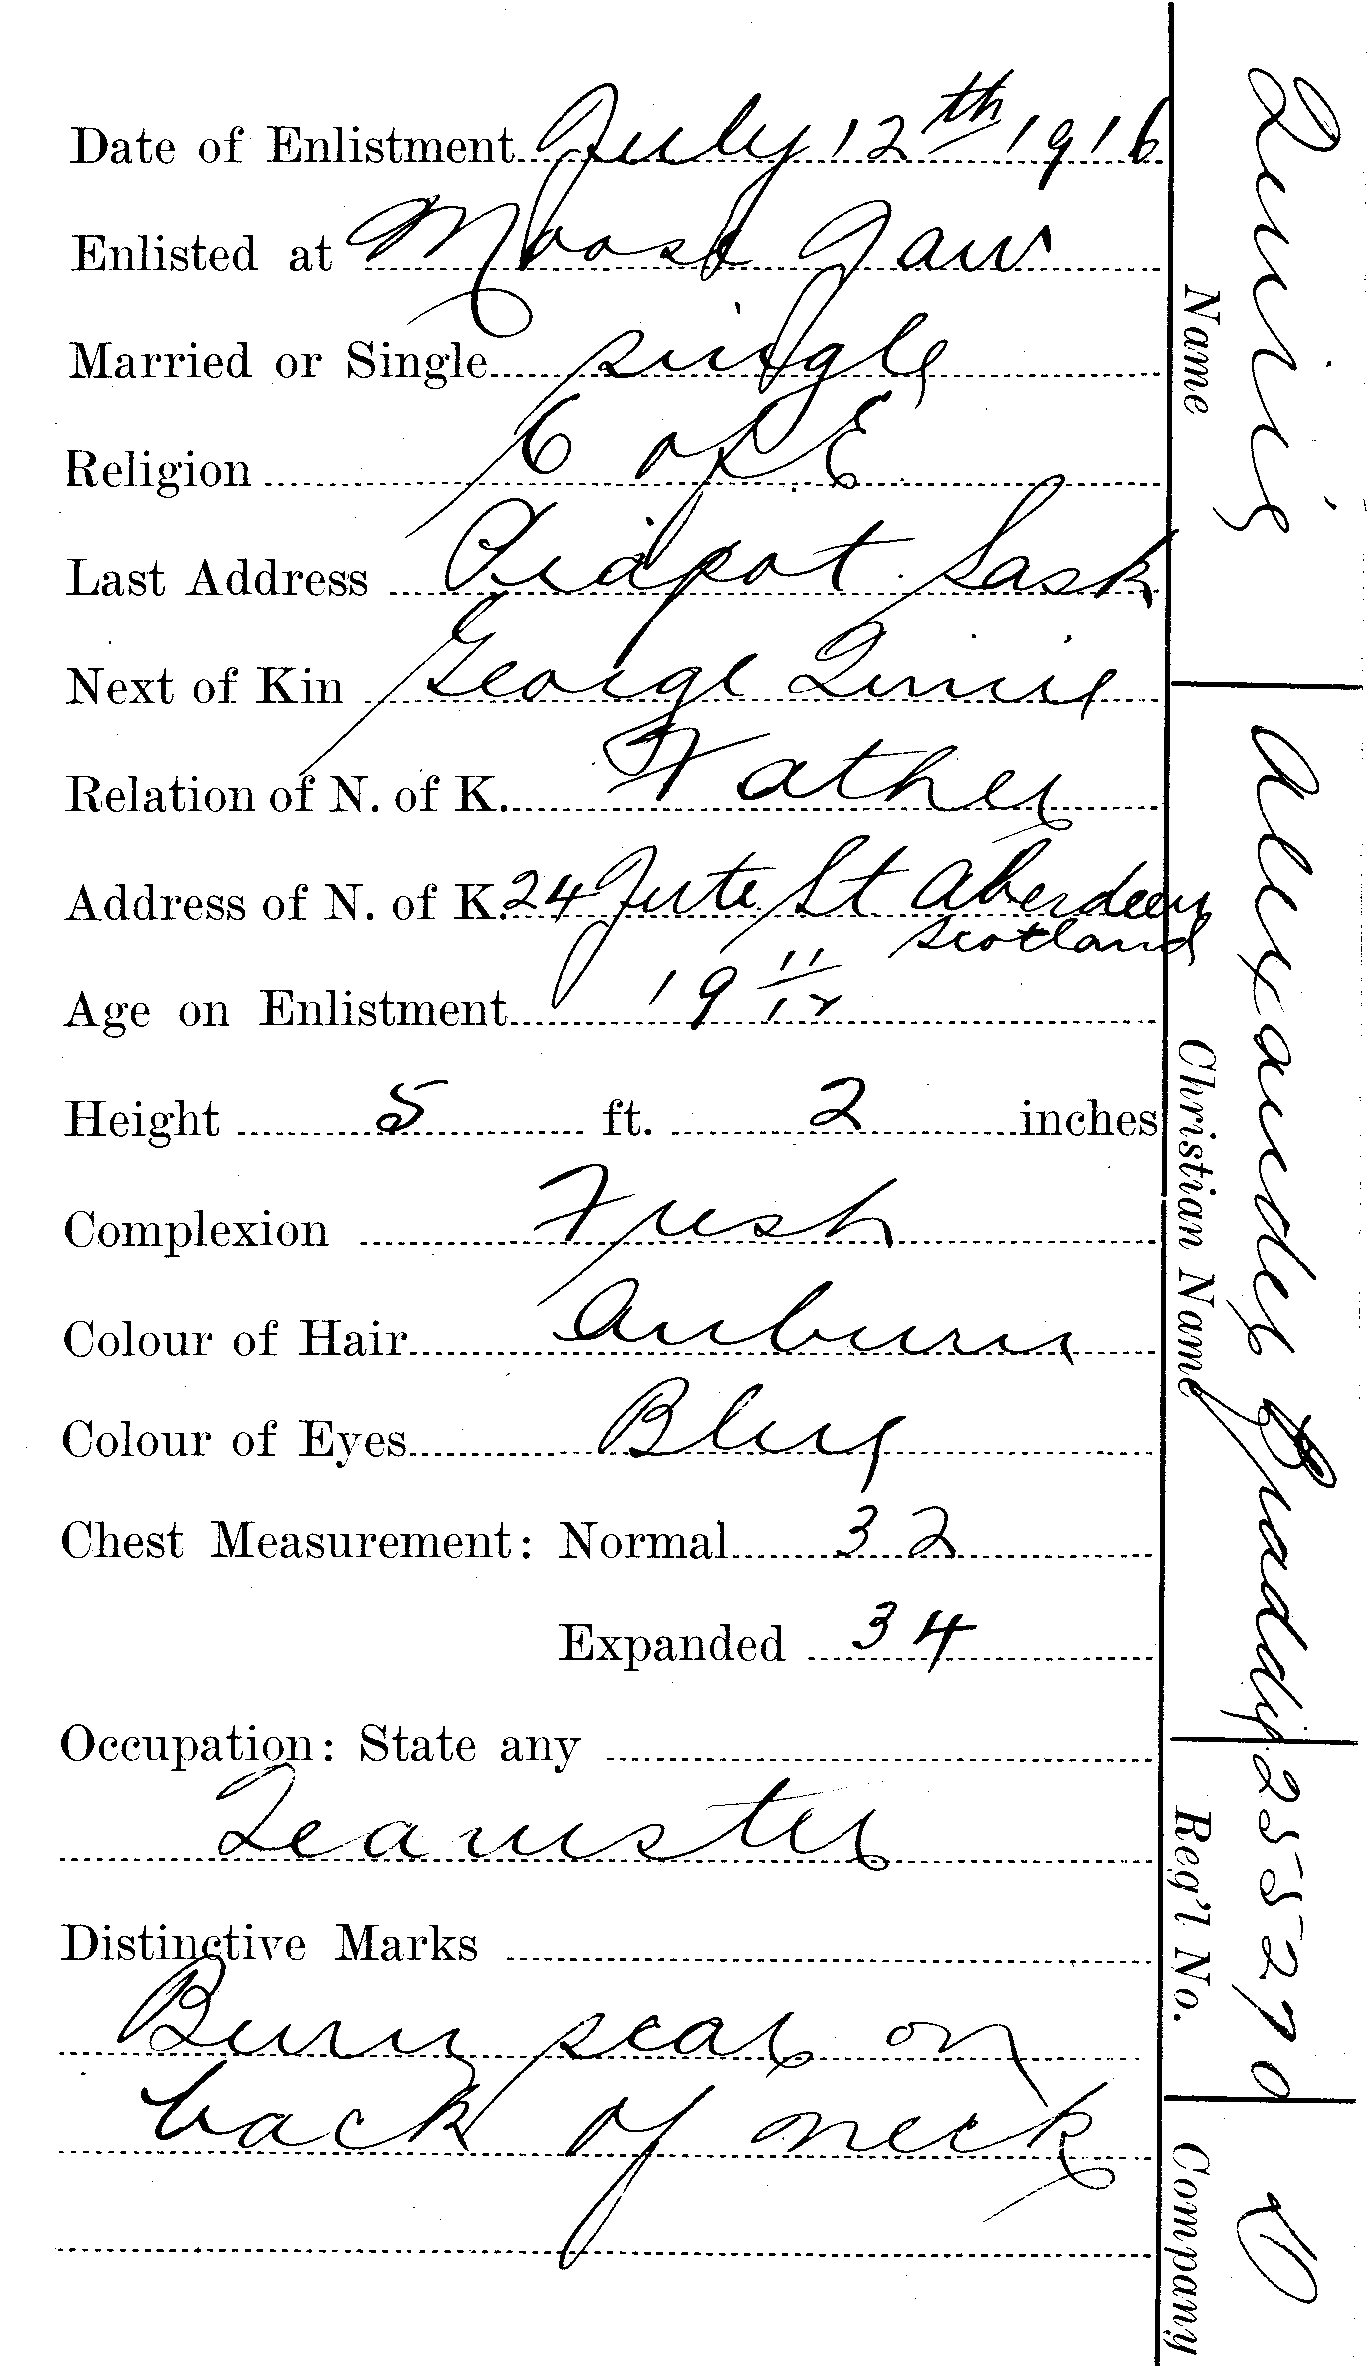 Date of Enlistment July 12th 1916
Enlisted at Moose Jaw
Married or Single single
Religion C of E
Last Address Sask
Next of Kin George Quinie
Relation of N. of K. Father
Address of N. of K. 24 Jute St Aberdeen
Scotland
Age on Enlistment 19 11/12
Height 5 ft. 2 inches
Complexion Fresh
Colour of Hair Auburn
Colour of Eyes Blue
Chest Measurement: Normal 32
Expanded 34
Occupation: State any
Teamster
Distinctive Marks
Burn scar on
back of neck
Name
Christian Name Alexander
Reg'l No. 255270
Company D